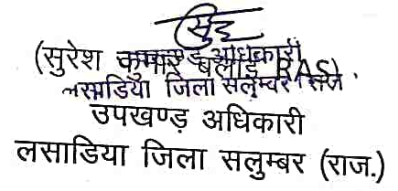 (सुरेश कुमार बलाई RAS)
उपखण्ड अधिकारी
लसाडिया जिला सलुम्बर राज
उपखण्ड़ अधिकारी
लसाडिया जिला सलुम्बर (राज.)